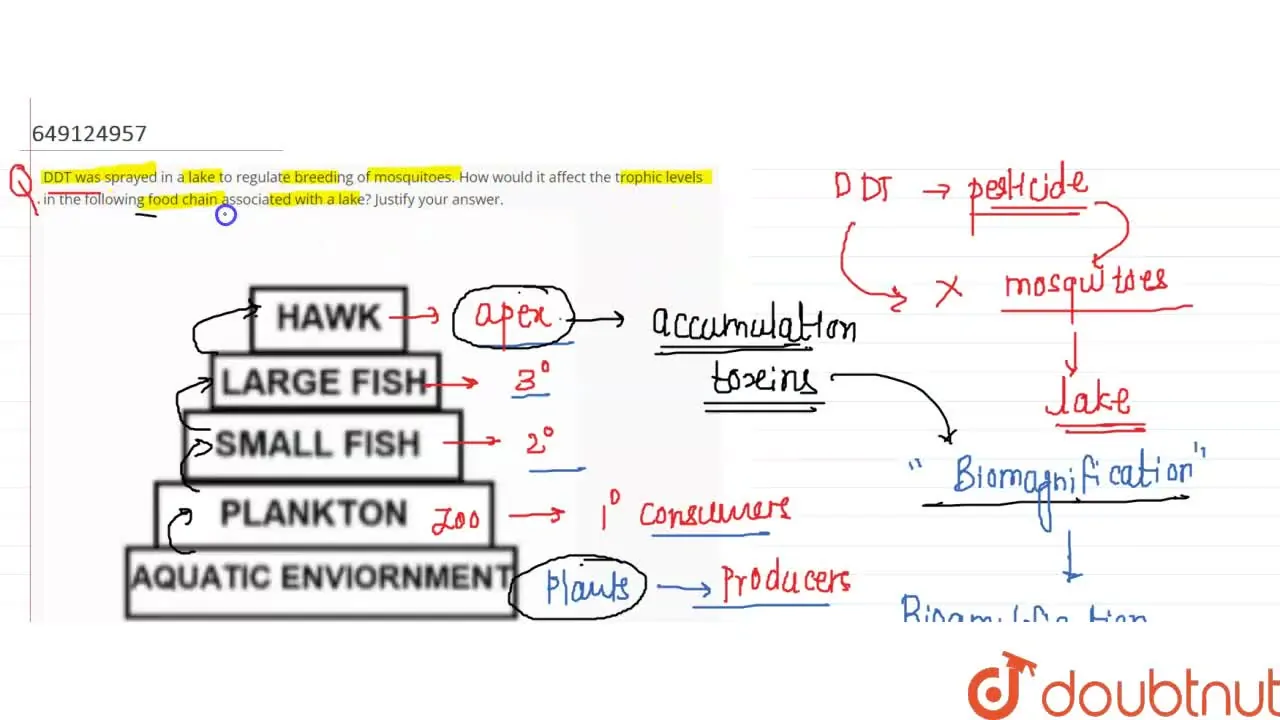 649124957
Q. DDT was sprayed in a lake to regulate breeding of mosquitoes. How would it affect the trophic levels
in the following food chain associated with a lake? Justify your answer.
DDT → pesticide
X mosquitoes
lake
HAWK → apex → accumulation
toxins
LARGE FISH → 3°
SMALL FISH → 2°
"Biomagnification"
PLANKTON Zoo → 1° consumers
AQUATIC ENVIORNMENT Plants → Producers
doubtnut